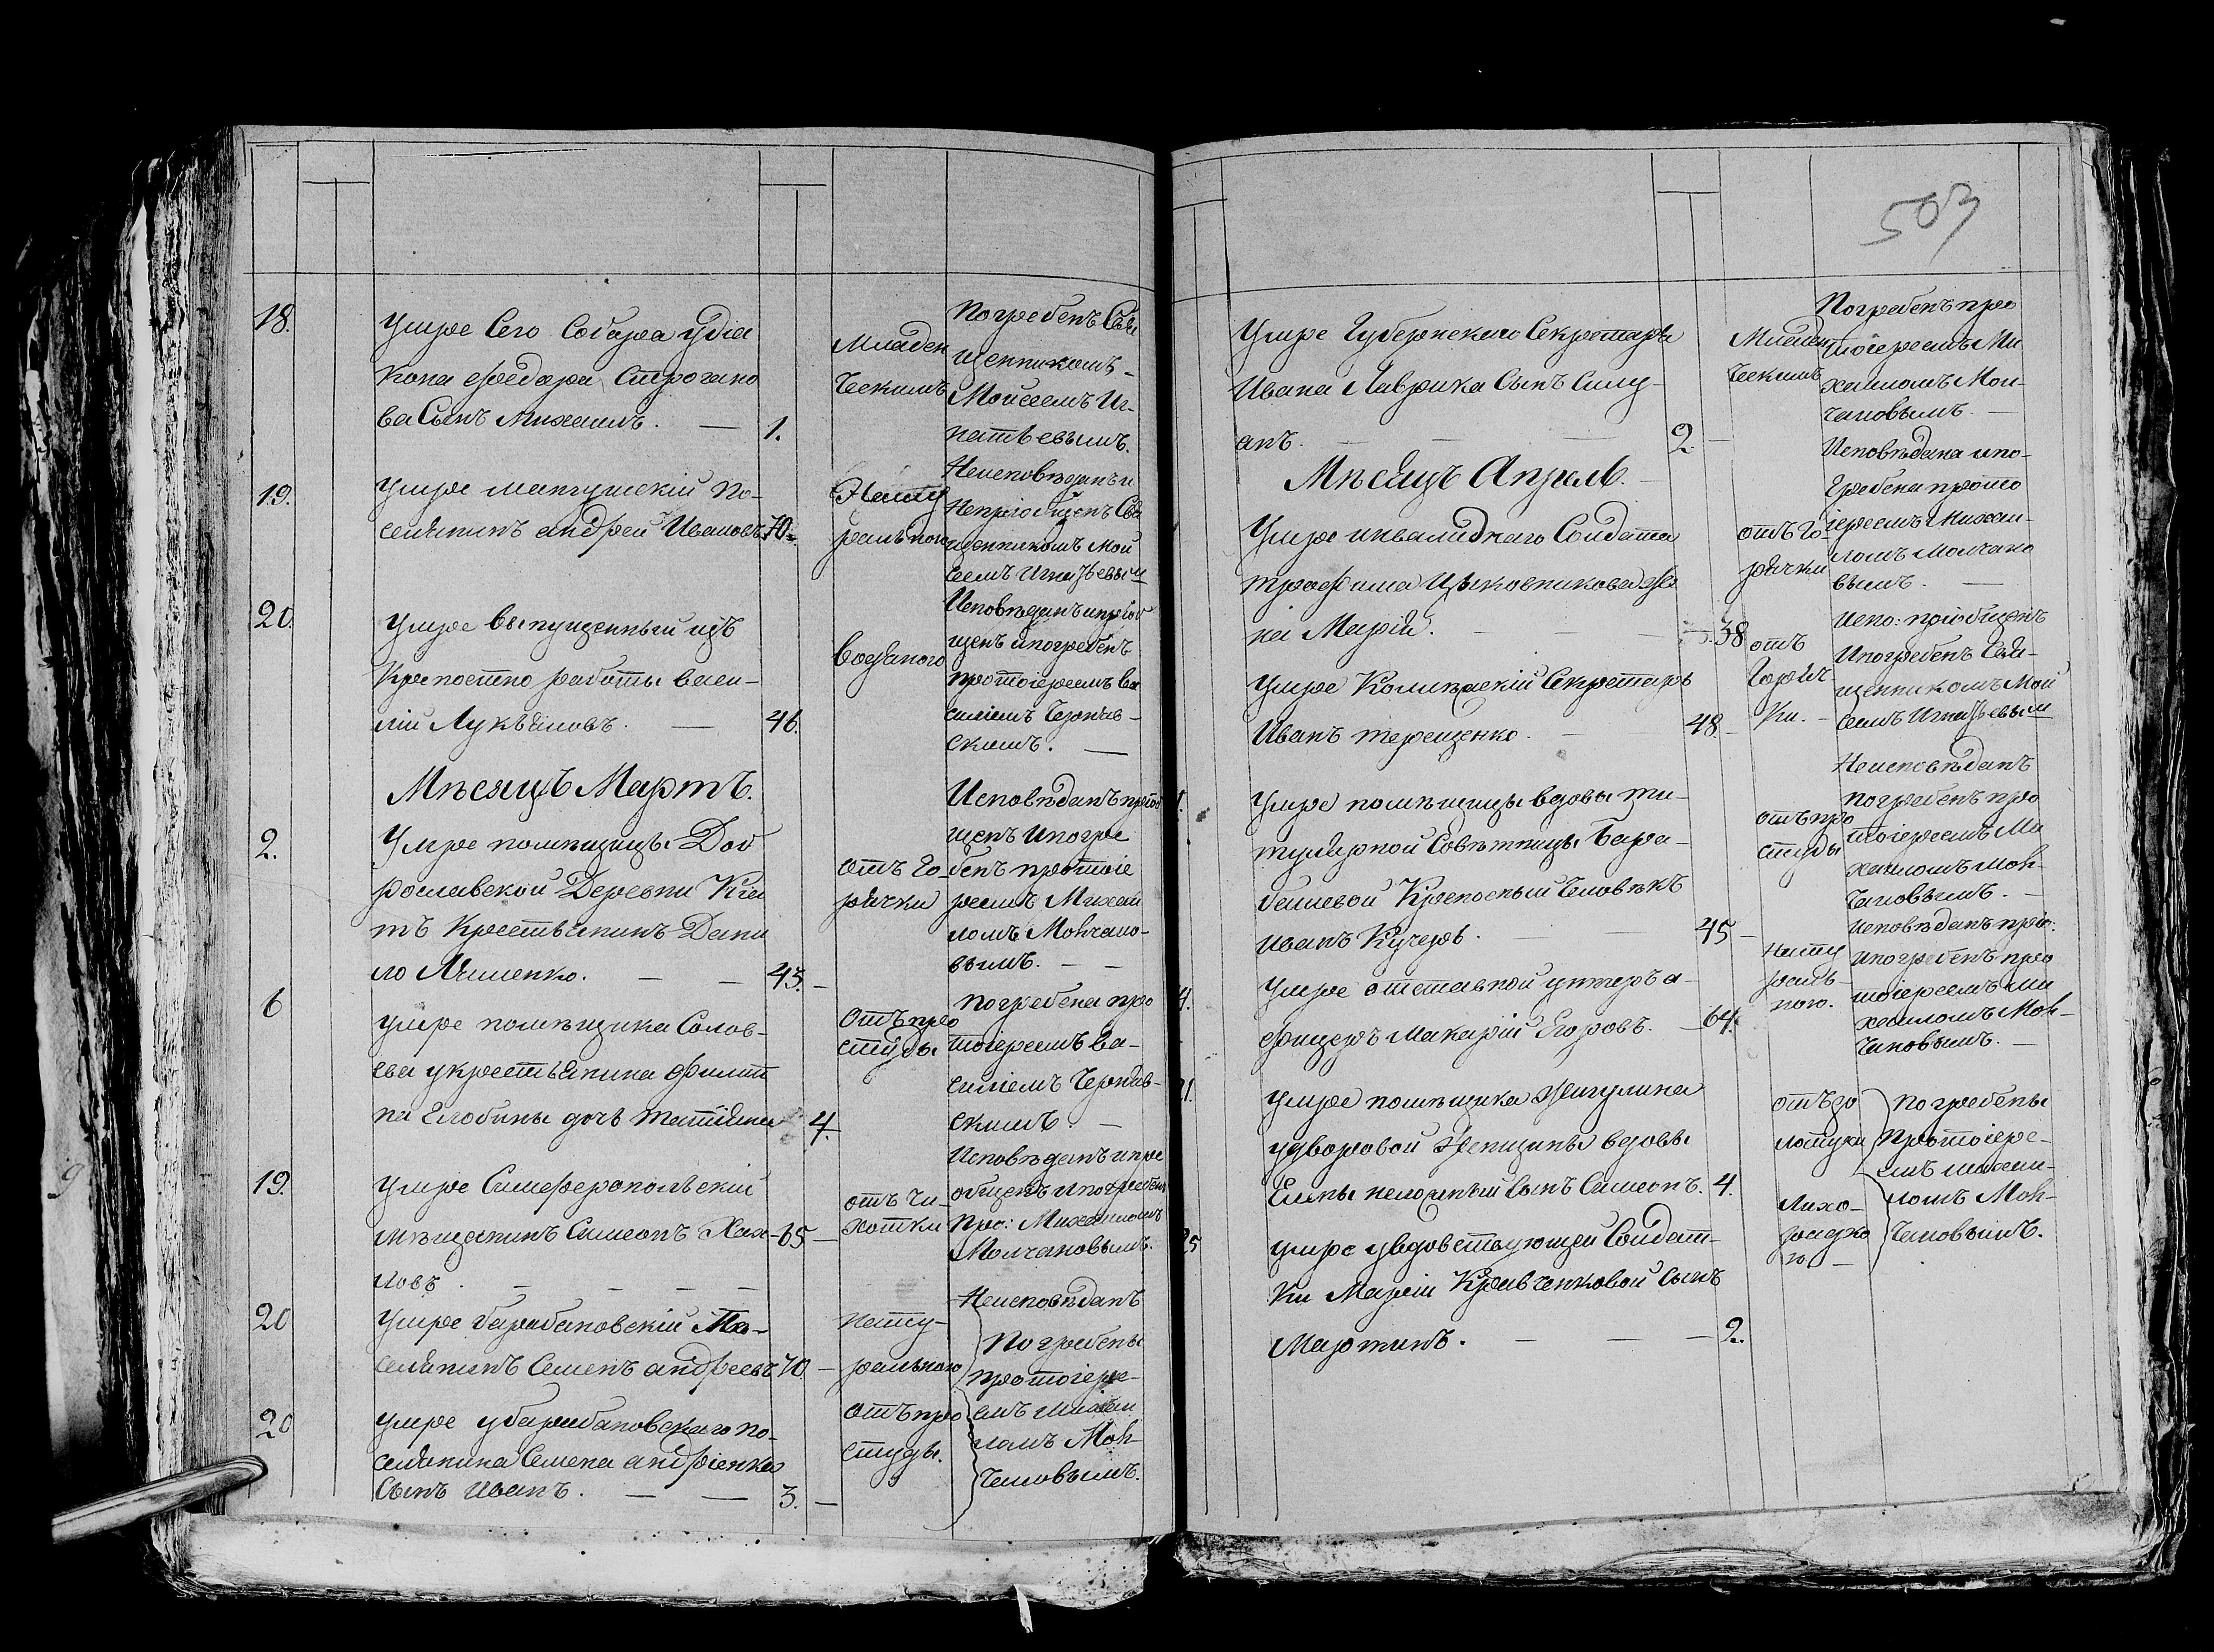 503
18.
Умре Сего Собора удiа
кона Ѳеодора Строгано
ва Сынъ Михаилъ. — 1.
Младен
ческимъ
Погребенъ Свя
щенникомъ
Моисеемъ Иг-
натьевымъ.
19.
Умре мангушскiй По-
селянинъ андрей Ивановъ 70
Нату
ральною
Неисповѣданъ и
Непрiобщенъ Свя
щенникомъ Мои
сеемъ Игнатьевым
20.
Умре выпущенный изъ
Крепостно работы васи-
лiй Лукьяновъ. — 46.
водяного
Исповѣданъ и прiоб
щенъ и погребенъ
протоiереемъ Ва
силiемъ Черняв-
скимъ. —
Мѣсяцъ Мартъ.
2.
Умре помѣщицы Доб
рославской Деревни Кiя
тъ Крестьянинъ Дани
ло Ляшенко. — — 43. —
отъ Го-
рячки
Исповѣданъ прiоб
щенъ и погре
бенъ протоiе
реемъ Михаи
ломъ Молчано-
вымъ. — —
6
Умре помѣщика Солов-
ева укрестьянина Филип
па Злобины дочь Татiяна 4.
Отъ про
студы
Погребена про
тоiереемъ Ва-
силiемъ Черняв-
скимъ. —
19.
Умре Симферопольскiй
мѣщанинъ Симеонъ Хах- 65 —
ловъ. — — — —
отъ чи-
хотки
Исповѣданъ и прi
общенъ и погребенъ
Про: Михаиломъ
Молчановымъ.
20
Умре барабановскiй По-
селянинъ Семенъ андреевъ 70 —
нату-
рального
Неисповѣданъ
20
Умре убарабановскаго по-
селянина Семена андрiенка
Сынъ Иванъ. — — 3. —
отъ про
студы.
Погребены
протоiере-
емъ Михаи
ломъ Мол-
чановымъ.
Умре Губернскаго Секретаря
Ивана Лаврика Сынъ Симу-
анъ. — — 2 —
Младен
ческимъ
Погребенъ про
тоiереемъ Ми
хаиломъ Мол-
чановымъ. —
Мѣсяцъ Апрель. —
Умре инвалиднаго Солдата
трофима Цыковникова Же
на Марiя. — — 38
отъ Го-
рячки
Исповѣдана и по-
гребена прото
iереемъ Михаи-
ломъ Молчано
вымъ. —
Умре Колижскiй Секретарь
Иванъ терещенко. — 48. —
отъ
Горяч
ки. —
Испо: прiобщенъ
И погребенъ Свя-
щенникомъ Мои
сеемъ Игнатьевым
1.
Умре помѣщицы вдовы ти-
тулярной Совѣтницы Бара-
башевой Крепосный Человѣкъ
Иванъ Кучеръ. — — 45 —
отъ про
студы
Неисповѣданъ
погребенъ про
тоiереемъ Ми
хаиломъ Мол-
чановымъ. —
4.
Умре отставной унтеръ а-
фицеръ Макарiй Егоровъ. — 64.
Нату
раль-
ною.
Исповѣданъ прiо:
и погребенъ про
тоiереемъ Ми
хаиломъ Мол-
чановымъ. —
21.
Умре помѣщика Жигулина
удворовой Женщины вдовы
Елены незаконный сынъ Симеонъ. 4.
отъ зо
лотухи
25
Умре увдовствующей Солдат-
ки Марiи Кравченковой сынъ
Мартинъ. — — — 2.
Лихо-
радко
ю —
Погребены
Протоiере-
емъ Михаи-
ломъ Мол-
чановымъ.